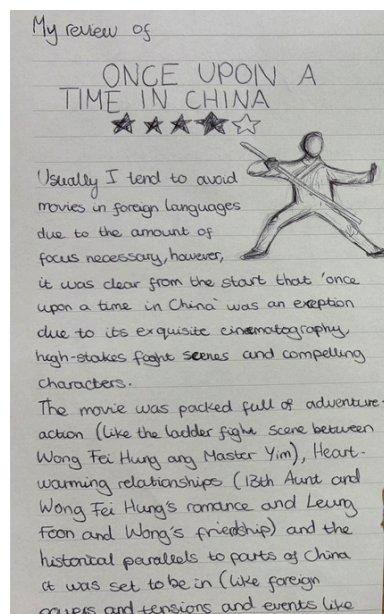 My review of
ONCE UPON A
TIME IN CHINA
Usually I tend to avoid
movies in foreign languages
due to the amount of
focus necessary, however,
it was clear from the start that 'once
upon a time in China' was an exeption
due to its exquisite cinematography,
high-stakes fight scenes and compelling
characters.
The movie was packed full of adventure
action (like the ladder fight scene between
Wong Fei Hung ang Master Yim), Heart-
warming relationships (13th Aunt and
Wong Fei Hung's romance and Leung
Foon and Wong's friendship) and the
historical parallels to parts of China
it was set to be in (like foreign
powers and tensions and events like